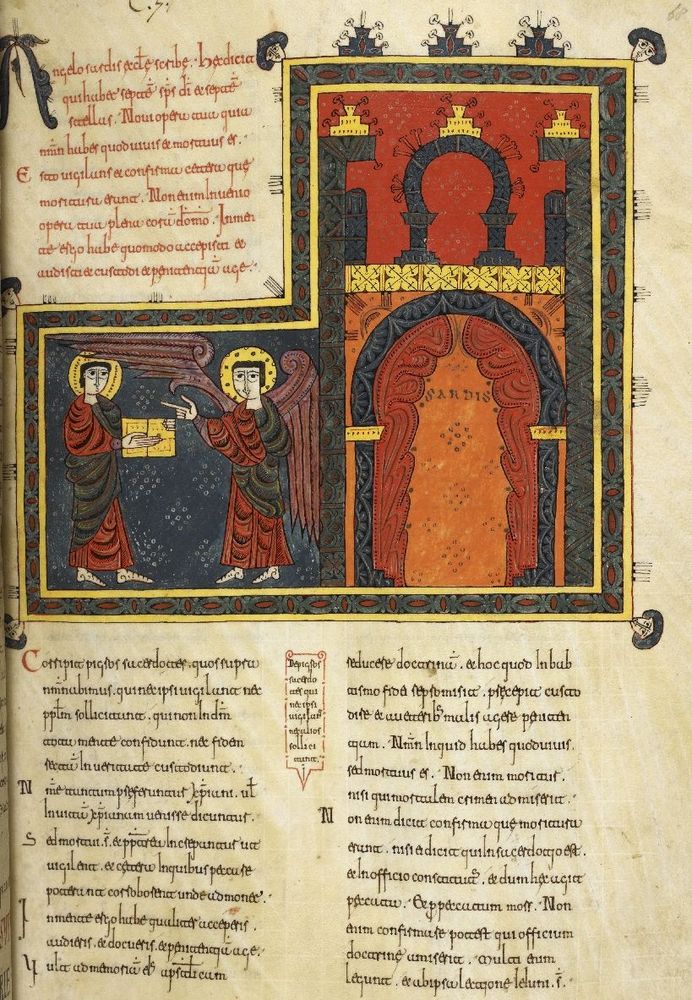 C. 7.
68
Angelo sardis eccle scribe. Hec dicit
qui habet septē sp̄s dī et septē
stellas. Noui opera tua quia
nm̄n habes quod uiuis et mortuus es.
Esto uigilans et confirma cetera que
moritura erant. Non enim Inuenio
opera tua plena corā dm̄o. Inmen
te ergo habe quomodo accepisti et
audisti et custodi et penitentiā age.
SARDIS
Corripit pigros sacerdotes. quos supra
nminabimus. qui nec ipsi uigilant nec
pplm sollicitant. qui non Indm̄
tota mente confidunt. nec fidem
rectā Inueritate custodiunt.
Nme tantum preferuntur xpiani. ul
Inuitā xpianam uenisse dicuntur.
Sed mortui s̄. et
uigilent. et cetera Inquibus
poterant corroborent unde admonet.
Inmente ergo habe qualiter acceperis.
audieris et docueris. et penitentiā age.
Ult ad memoriā apstlicam
De pigros
sacerdo
tes qui
nec ipsi
uigilant
nec alios
sollici
tant.
reducere doctrinā. et hoc quod Inbab
tismo fidei sepromisit. precepit custo
dire et aueteribs malis agere peniten
tiam. Nmn Inquid habes quod uiuis.
sed mortuus es. Non enim moritur.
nisi qui mortalem crimen admiserit.
Non enim dicit confirma que moritura
erant. nisi ei dicit qui Insacerdotio est.
et Inofficio constitutus. et dum hec agit
peccatū. Et per peccatum mors. Non
enim confirmare potest qui officium
doctrine amiserit. Multi enim
legunt. et ab ipsa lectione Ieiuni. s̄.